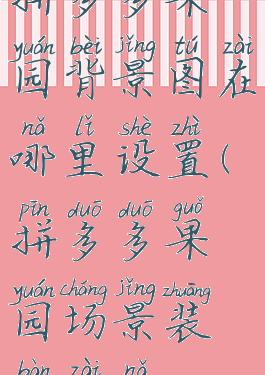 拼多多果
yuán bèi jǐng tú zài
园背景图在
nǎ lǐ shè zhì
哪里设置(
pīn duō duō guǒ
拼多多果
yuán chǎng jǐng zhuāng
园场景装
bàn zài nǎ